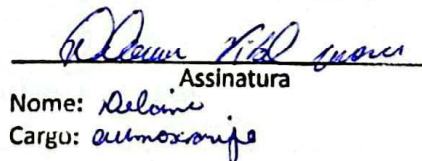 Vidal
Assinatura
Nome: Delaine
Cargo: almoxarife